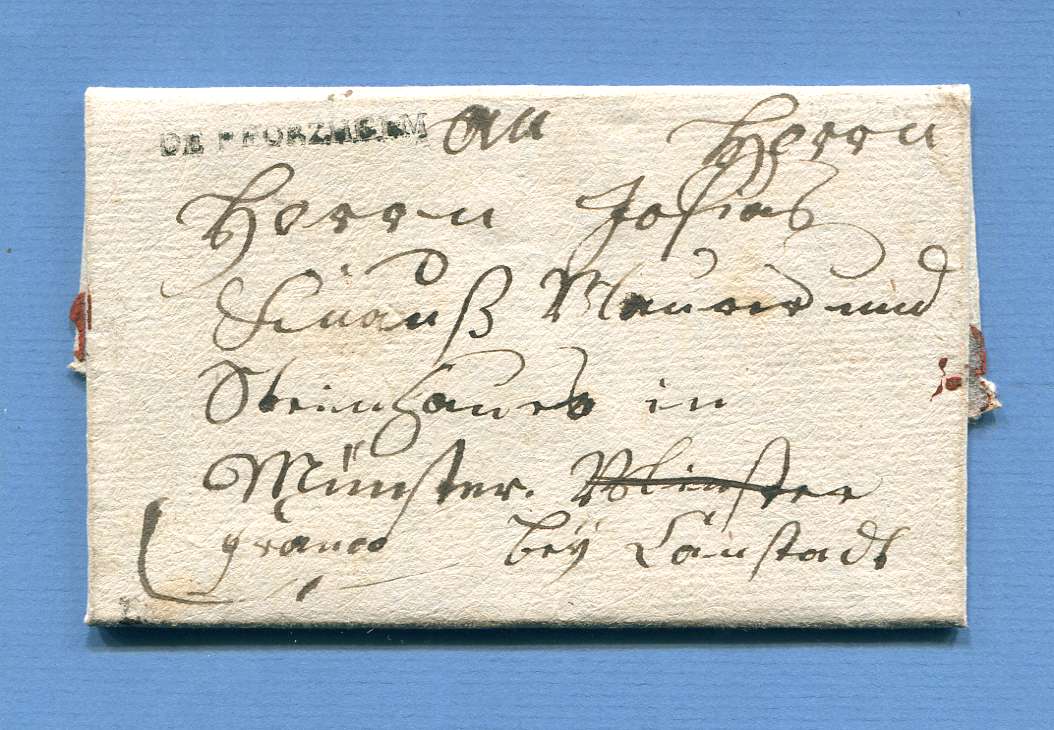 DE PFORZHEIM An Herrn
Herrn Josias
Knauß Maurer und
Steinhauer in
Münster. Münster
franco bey Canstadt